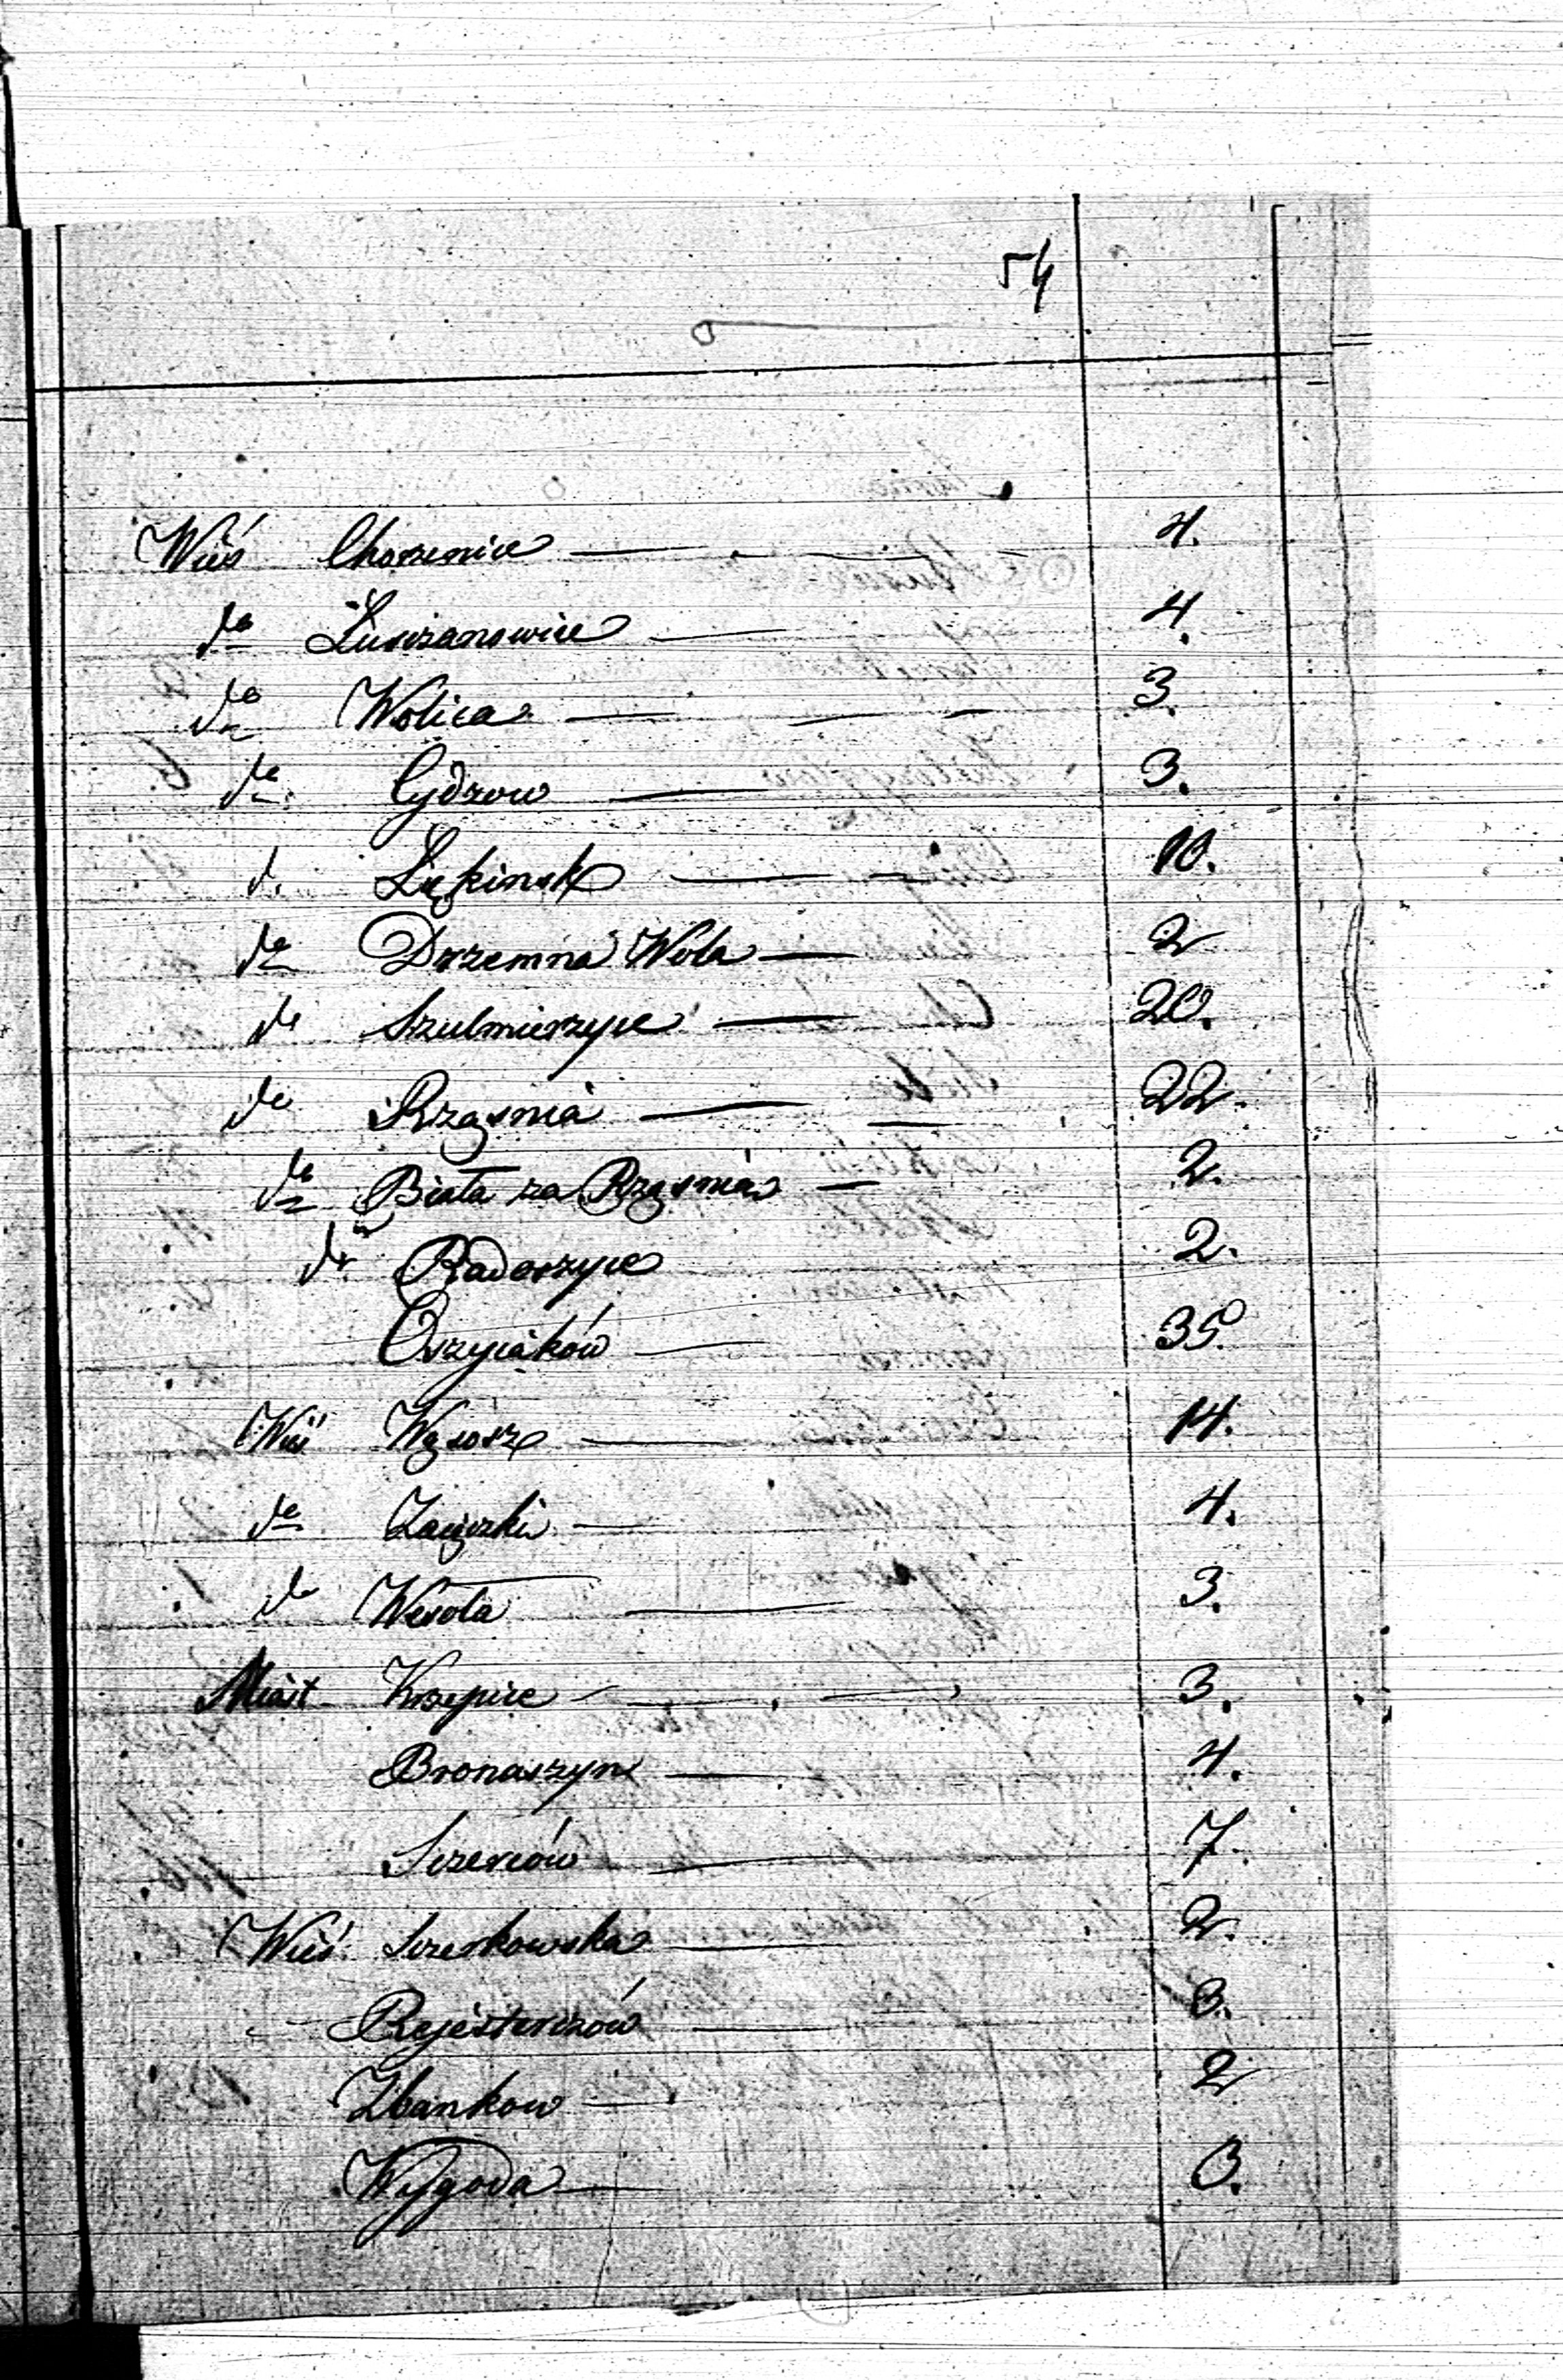 54
Wieś Chorzenice 4.
do Łuszczanowice 4.
do Wolica 3.
do Cydzow 3.
d. Łękinsk 10.
do Drzemna Wola 2
do Szulmierzyce 20.
do Rząsnia 22.
do Biała za Rząsnią 2.
do Radoszyce 2.
Oszyiaków 35.
Wieś Wąsosz 14.
do Zaiączki 4.
do Wesoła 3.
Miast Krzepice 3.
Bronaszyn 4.
Szczerców 7.
Wieś Szczerkowska 2.
Rejesterczów 3.
Zbankow 2
Wygoda 3.